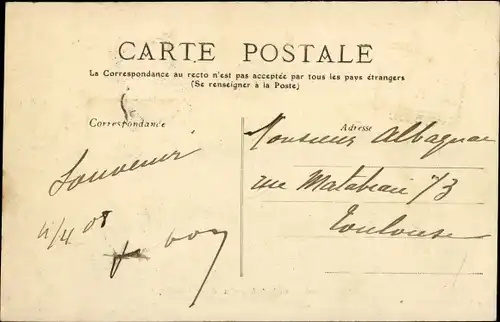 CARTE POSTALE
La Correspondance au recto n'est pas acceptée par tous les pays étrangers
(Se renseigner à la Poste)
Correspondance
Adresse
Souvenir
4/4 08
Monsieur Albagnac
rue Matabiau 73
Toulouse